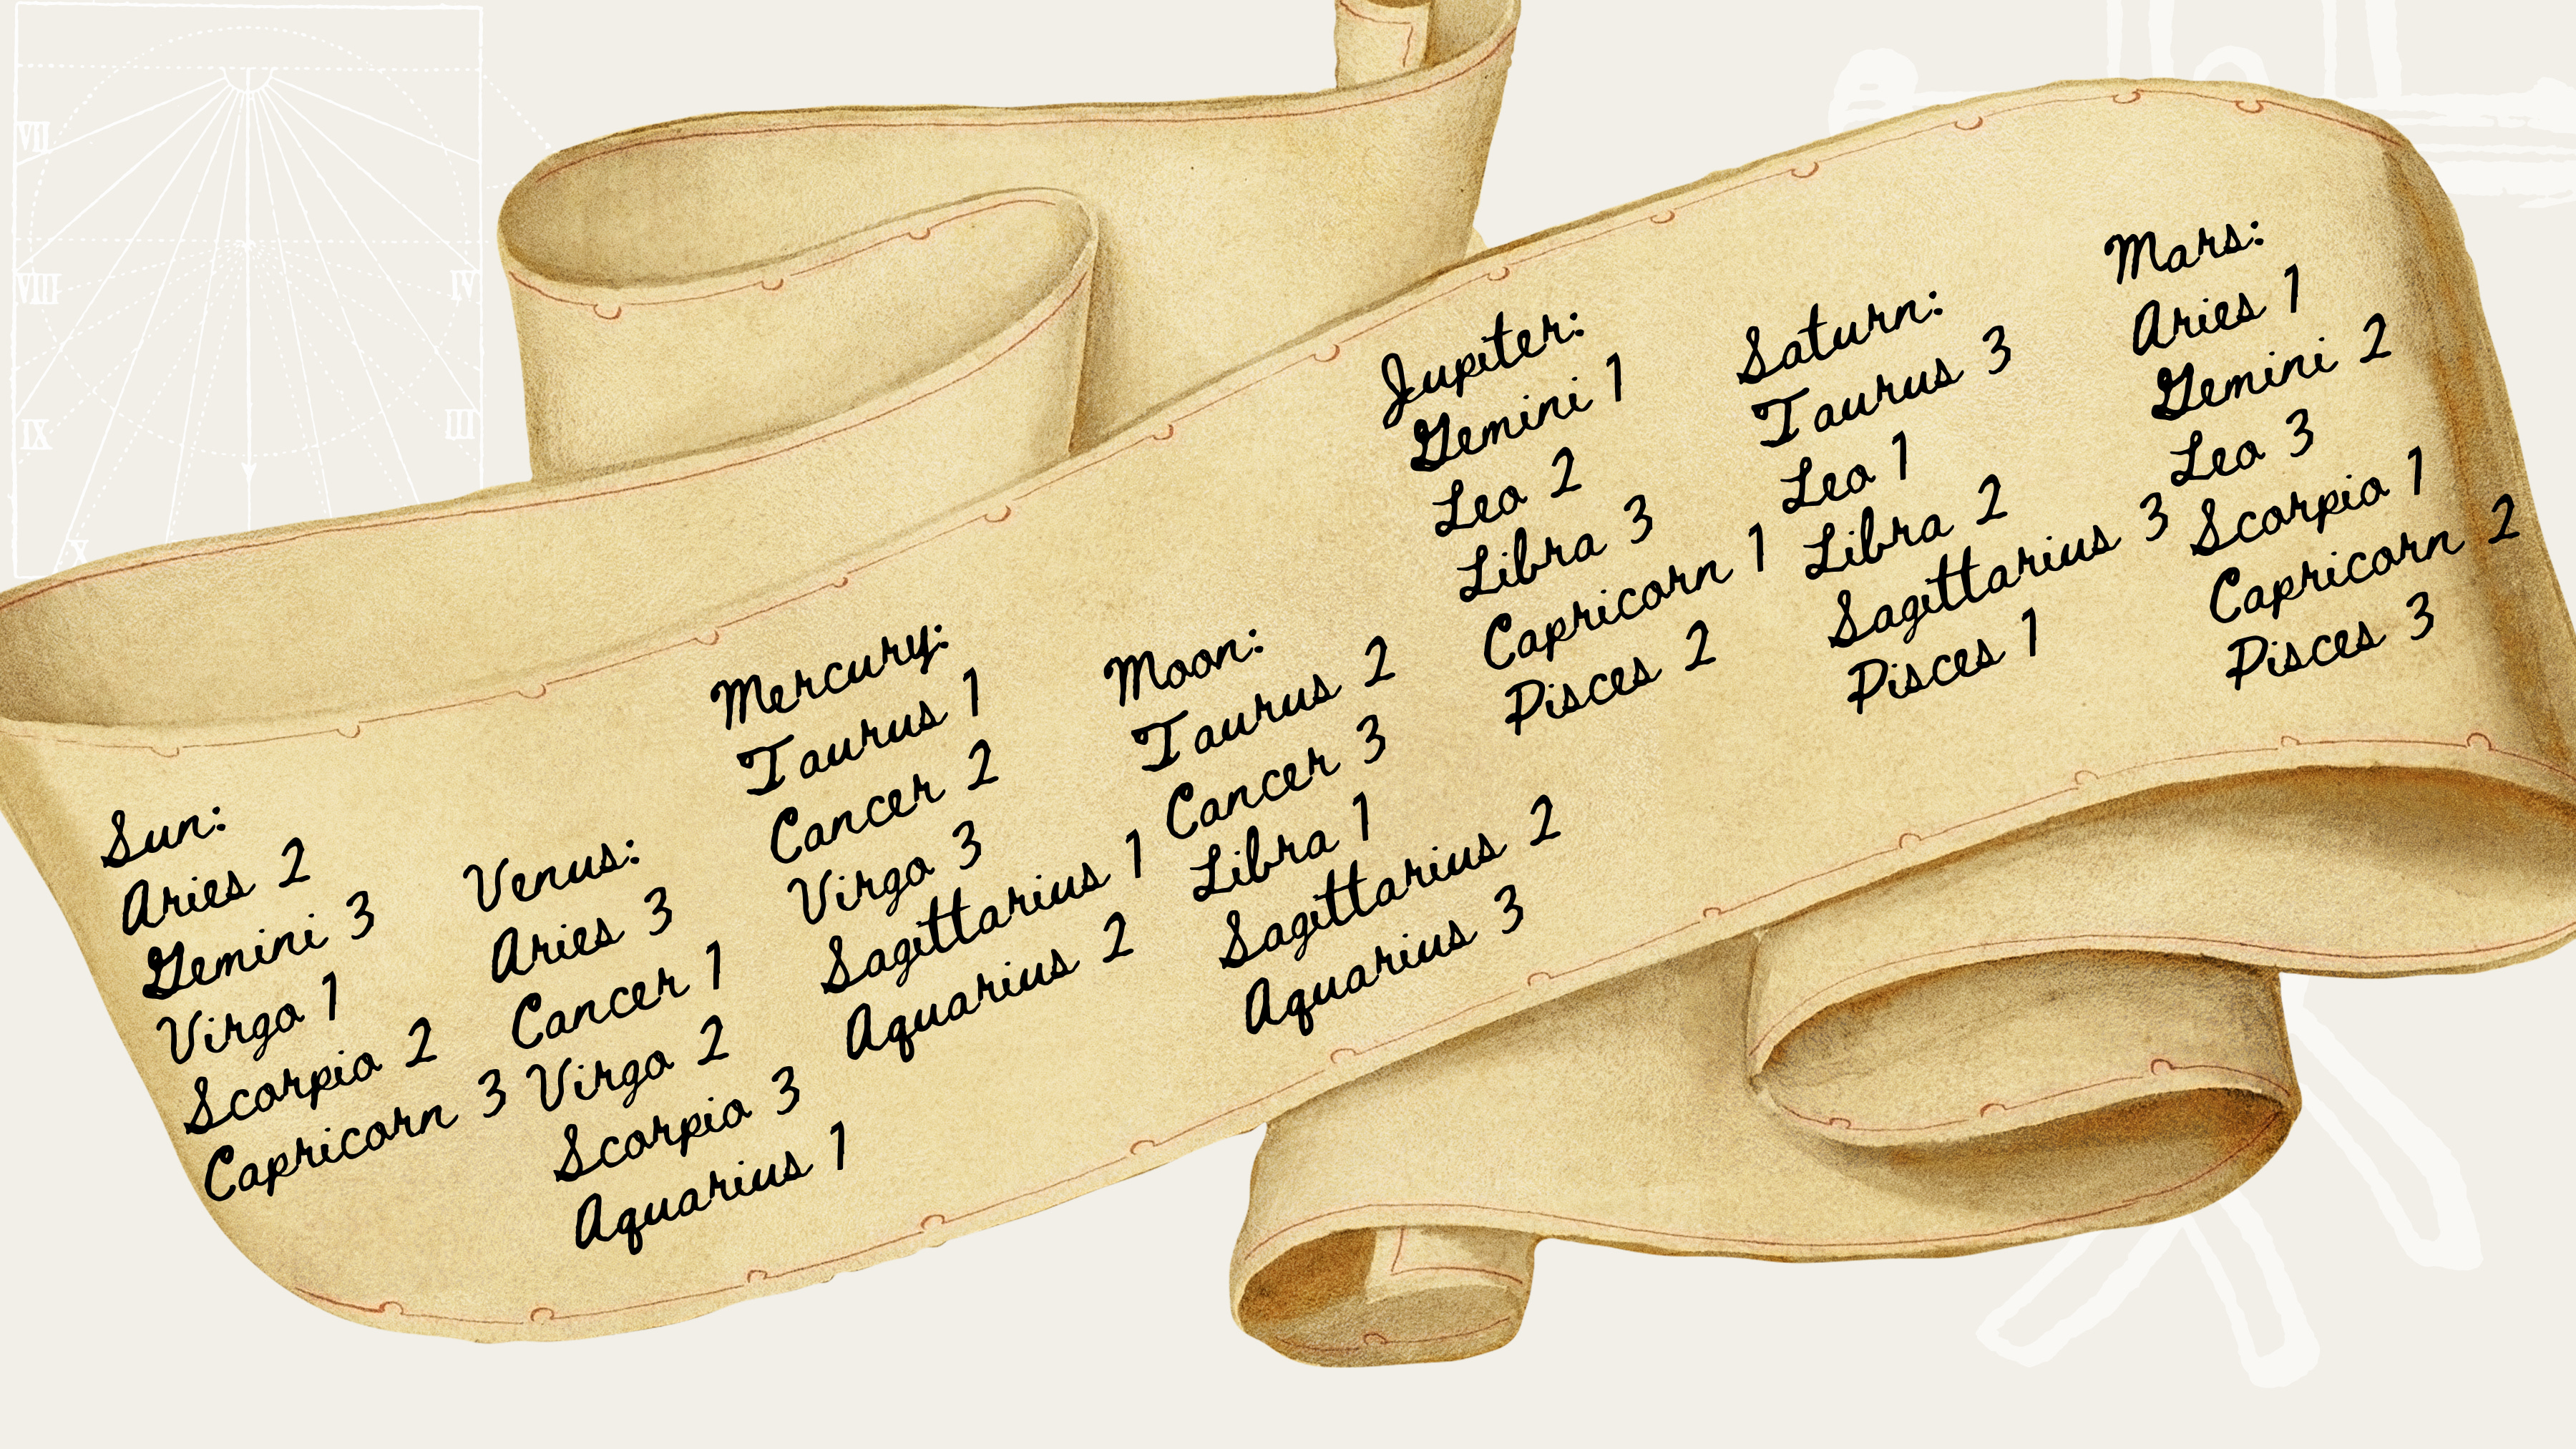 VII
VIII
IX
X
IV
III
Sun:
Aries 2
Gemini 3
Virgo 1
Scorpio 2
Capricorn 3
Venus:
Aries 3
Cancer 1
Virgo 2
Scorpio 3
Aquarius 1
Mercury:
Taurus 1
Cancer 2
Virgo 3
Sagittarius 1
Aquarius 2
Moon:
Taurus 2
Cancer 3
Libra 1
Sagittarius 2
Aquarius 3
Jupiter:
Gemini 1
Leo 2
Libra 3
Capricorn 1
Pisces 2
Saturn:
Taurus 3
Leo 1
Libra 2
Sagittarius 3
Pisces 1
Mars:
Aries 1
Gemini 2
Leo 3
Scorpio 1
Capricorn 2
Pisces 3